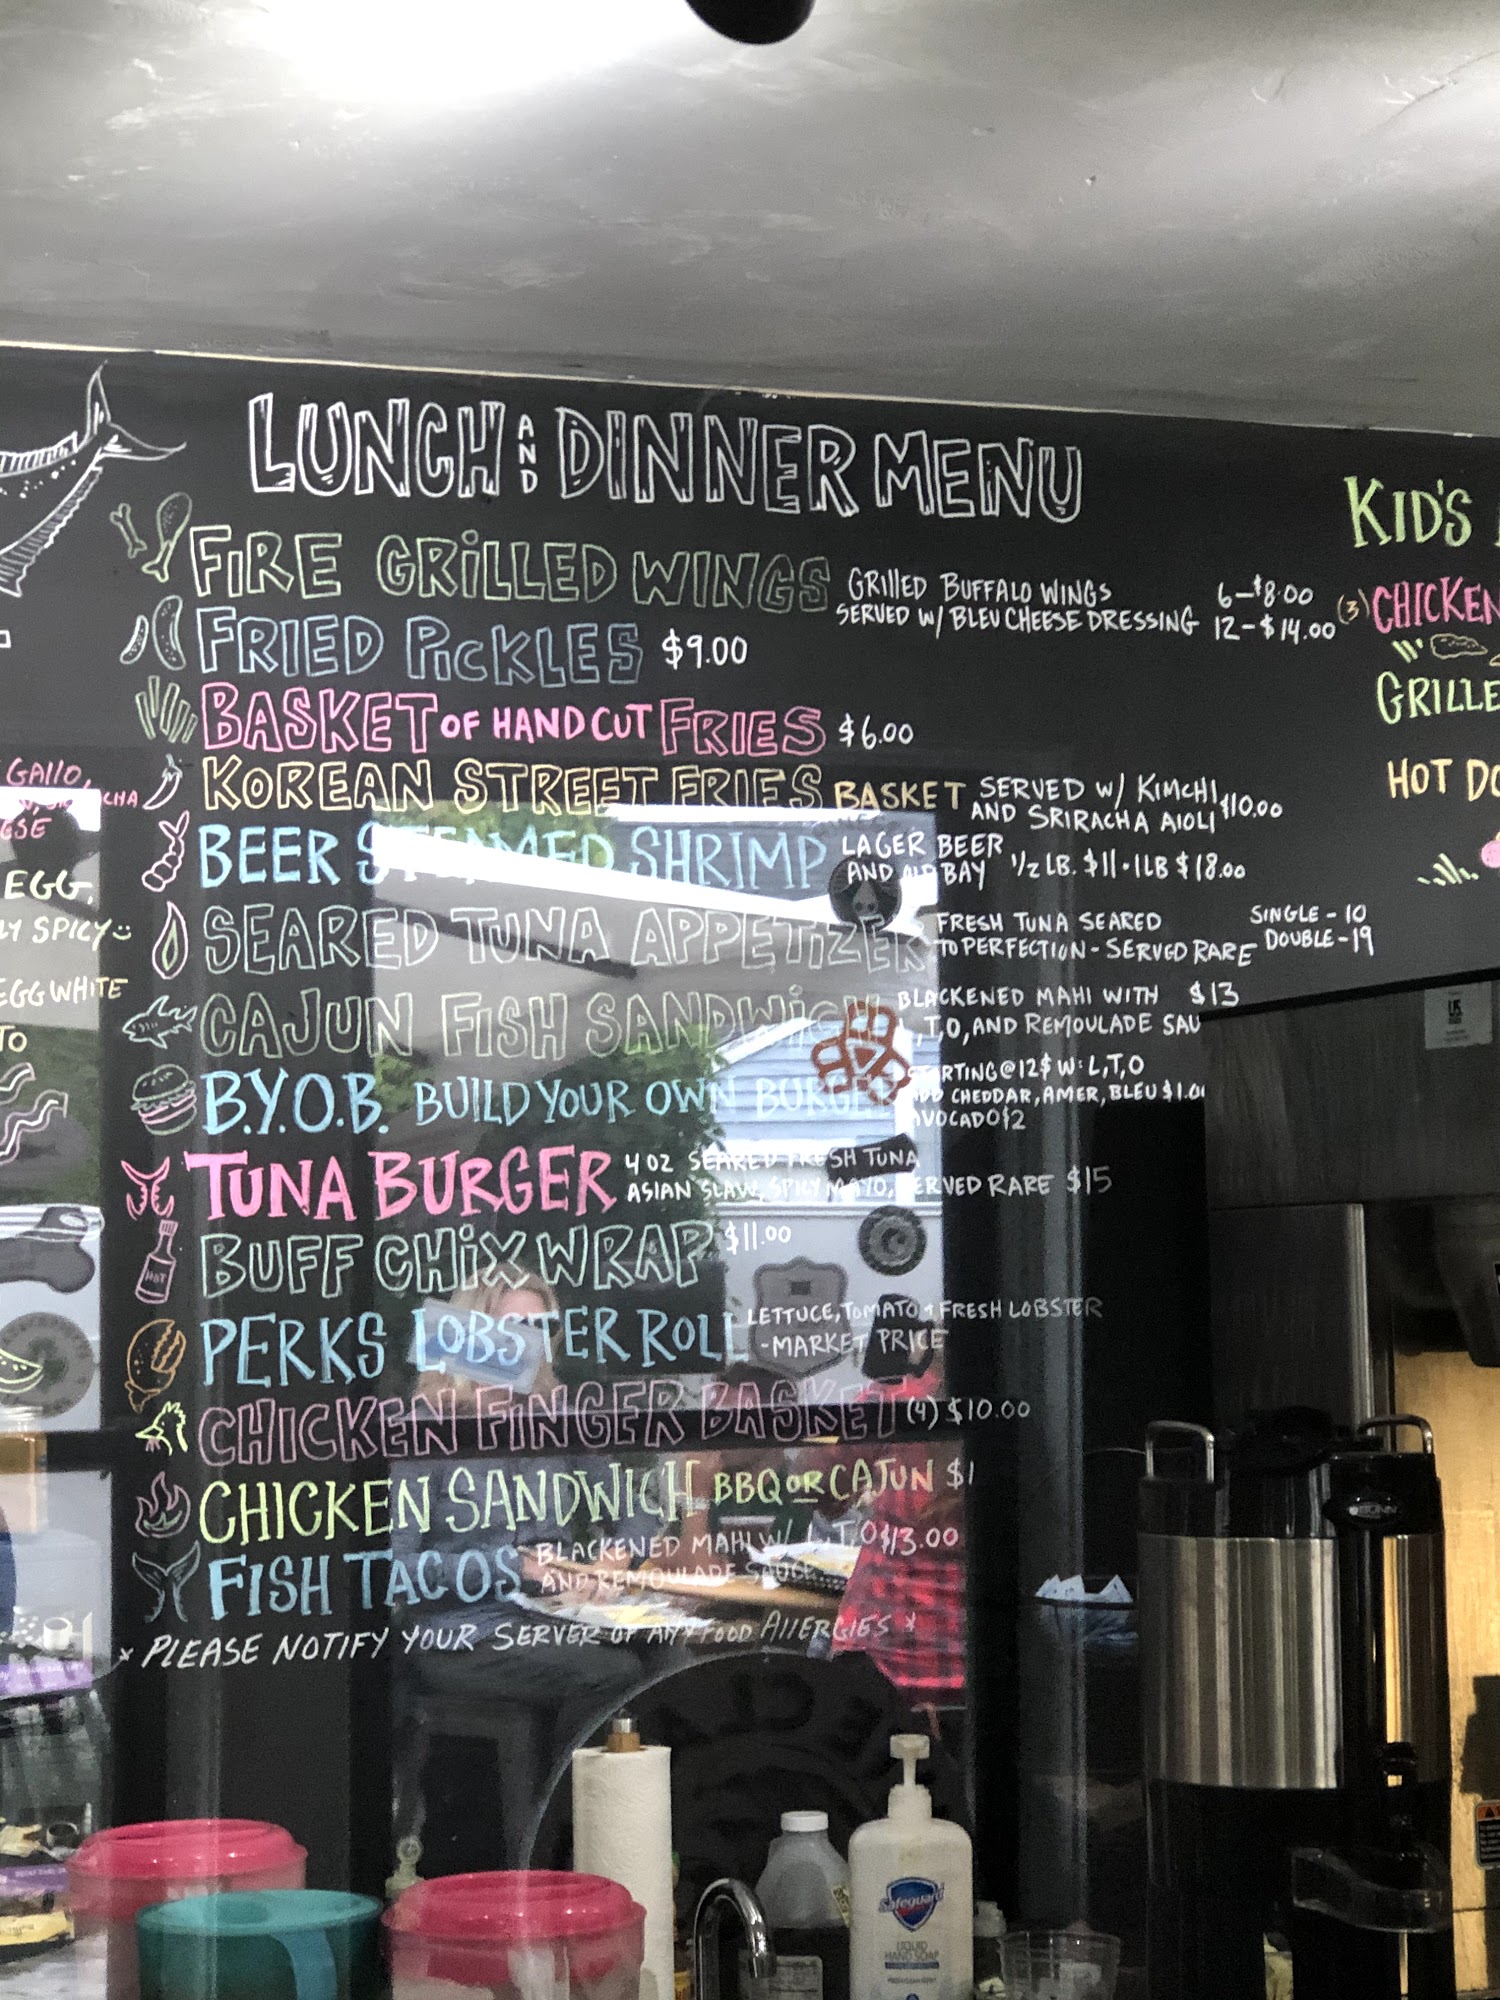 LUNCH AND DINNER MENU
FIRE GRILLED WINGS GRILLED BUFFALO WINGS 6-$8.00
SERVED W/ BLEU CHEESE DRESSING 12-$14.00
FRIED PICKLES $9.00
BASKET OF HAND CUT FRIES $6.00
KOREAN STREET FRIES BASKET SERVED W/ KIMCHI
AND SRIRACHA AIOLI $10.00
BEER STEAMED SHRIMP LAGER BEER
AND OLD BAY 1/2 LB. $11 · 1LB $18.00
SEARED TUNA APPETIZER FRESH TUNA SEARED SINGLE - 10
TO PERFECTION - SERVED RARE DOUBLE - 19
CAJUN FISH SANDWICH BLACKENED MAHI WITH $13
L,T,O, AND REMOULADE SAU
B.Y.O.B. BUILD YOUR OWN BURGER STARTING @ 12$ W: L,T,O
ADD CHEDDAR, AMER, BLEU $1.00
AVOCADO $2
TUNA BURGER 4 OZ SEARED FRESH TUNA
ASIAN SLAW, SPICY MAYO, SERVED RARE $15
BUFF CHIX WRAP $11.00
HOT
PERKS LOBSTER ROLL LETTUCE, TOMATO + FRESH LOBSTER
-MARKET PRICE
CHICKEN FINGER BASKET (4) $10.00
CHICKEN SANDWICH BBQ OR CAJUN $1
FISH TACOS BLACKENED MAHI W/ L,T,O $13.00
AND REMOULADE SAUCE
* PLEASE NOTIFY YOUR SERVER OF ANY FOOD ALLERGIES *
KID'S
(3) CHICKEN
GRILLE
HOT DO
GALLO,
CHA
EGG,
LY SPICY
EGG WHITE
TO
BUNN
Safeguard
LIQUID
HAND SOAP